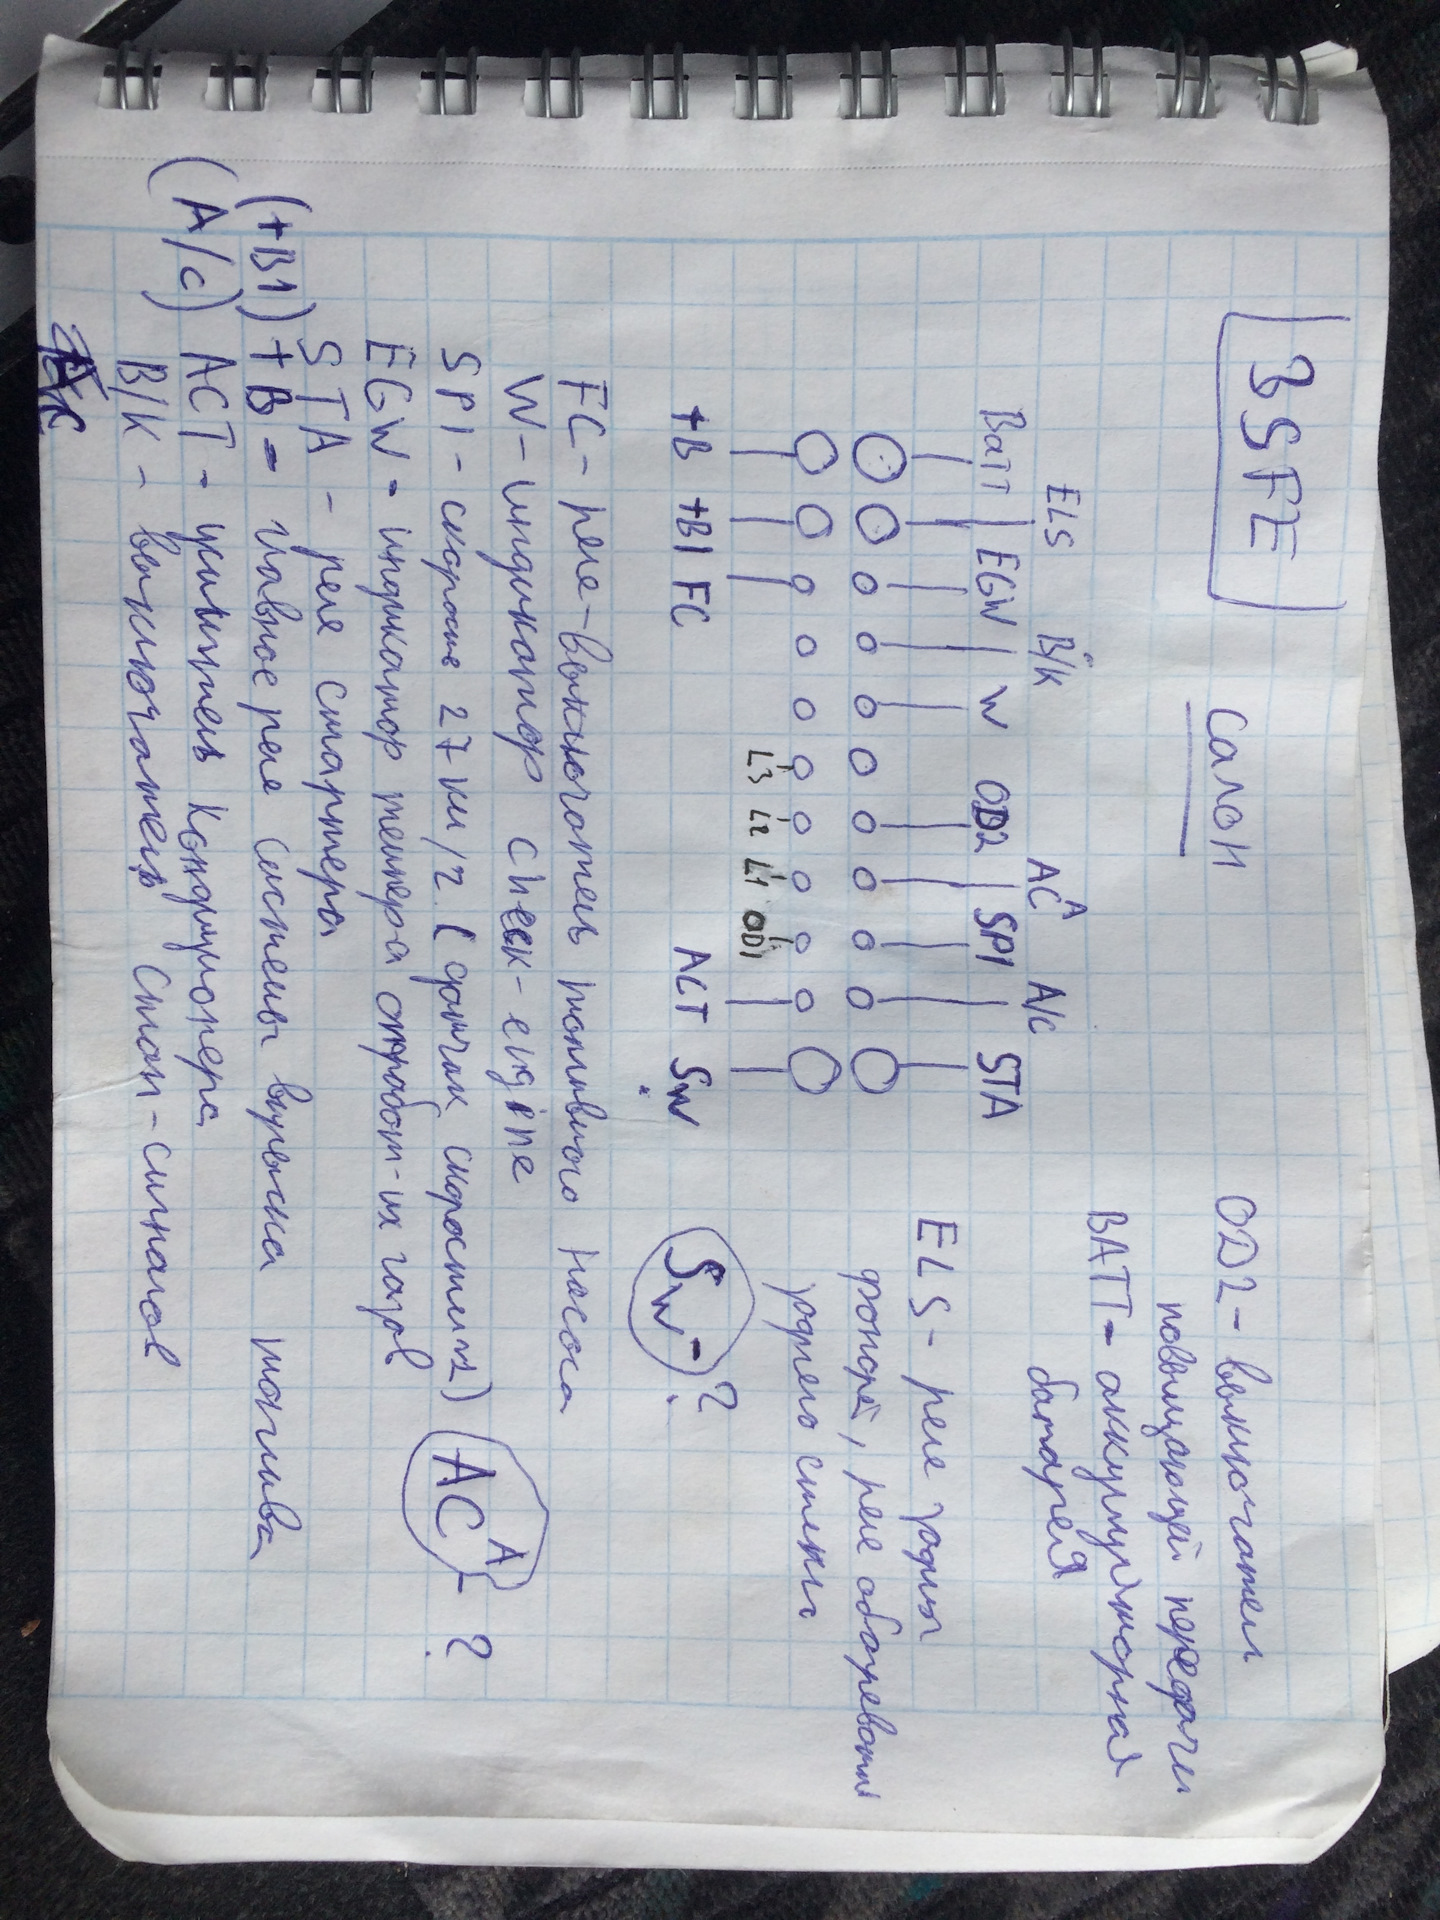 3SFE
Салон
ELS B/K ACᴬ A/C
BATT EGW W OD2 SP1 STA
L3 L2 L1 OD1
+B +B1 FC ACT SW
OD2 - выключатель
повышающей передачи
BATT - аккумуляторная
батарея
ELS - реле задних
фонарей, реле обогревателя
заднего стекла
SW - ?
FC - реле-выключатель топливного насоса
W - индикатор check-engine
SP1 - скорость 27 км/ч. (датчик скорости 1)
ACᴬ - ?
EGW - индикатор темпера отработ-их газов
STA - реле стартера
(+B1) +B = главное реле системы впрыска топлива
(A/C) ACT - усилитель кондиционера
B/K - выключатель стоп-сигналов